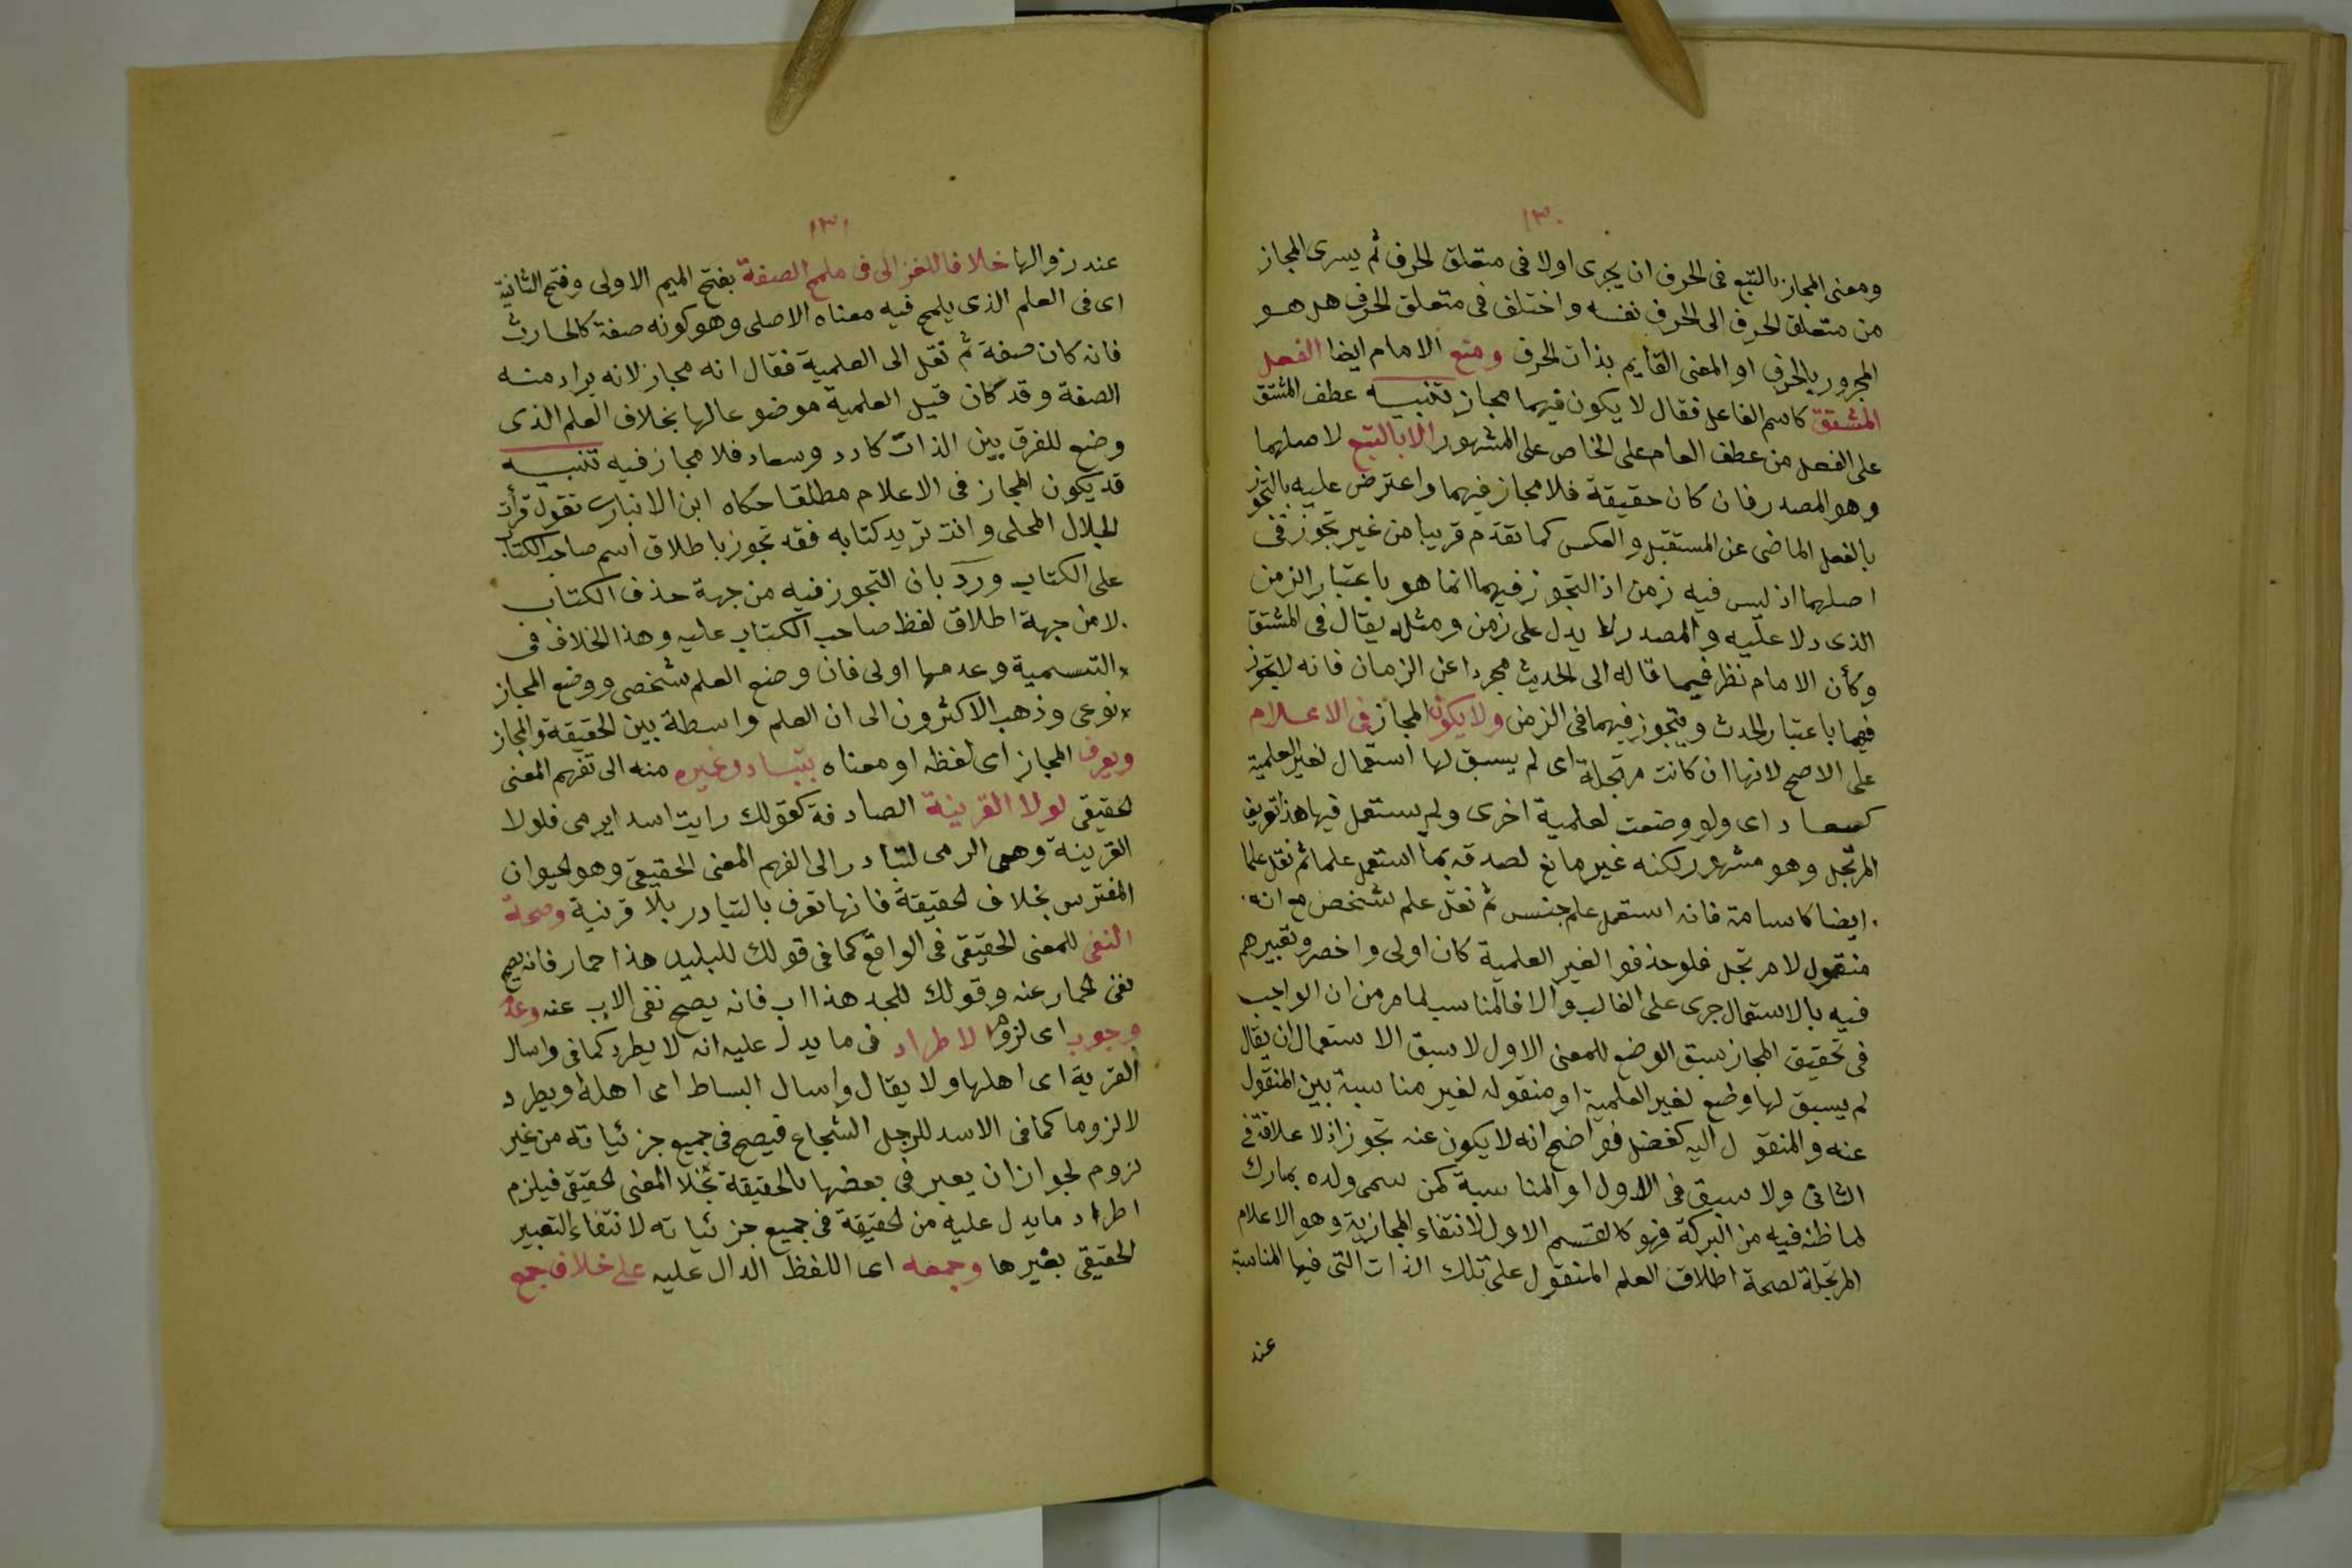 ١٣٠
ومعنى المجاز بالتبع فى الحرف ان يجرى اولا فى متعلق الحرف ثم يسرى المجاز
من متعلق الحرف الى الحرف نفسه واختلف فى متعلق الحرف هل هو
المجرور بالحرف او المعنى القايم بذات الحرف ومنع الامام ايضا الفعل
المشتق كاسم الفاعل فقال لا يكون فيهما مجاز تنبيه عطف المشتق
على الفعل من عطف العام على الخاص على المشهور الا بالتبع لاصلهما
وهو المصدر فان كان حقيقة فلا مجاز فيهما واعترض عليه بالتجوز
بالفعل الماضى عن المستقبل والعكس كما تقدم قريبا من غير تجوز فى
اصلهما اذ ليس فيه زمن اذ التجوز فيهما انما هو باعتبار الزمن
الذى دلا عليه والمصدر لا يدل على زمن ومثله يقال فى المشتق
وكأن الامام نظر فيما قاله الى الحديث مجردا عن الزمان فانه لا يتجوز
فيهما باعتبار الحدث ويتجوز فيهما فى الزمن ولا يكون المجاز فى الاعلام
على الاصح لانها ان كانت مرتجلة اى لم يسبق لها استعمال لغير العلمية
كسعاد اى ولو وضعت لعلمية اخرى ولم يستعمل فيها هذا تعريف
المرتجل وهو مشهور لكنه غير مانع لصدقه بما استعمل علما ثم نقل علما
ايضا كاسامة فانه استعمل علم جنس ثم نقل علم شخص مع انه
منقول لا مرتجل فلو حذفوا لغير العلمية كان اولى واخصر وتعبيرهم
فيه بالاستعمال جرى على الغالب والا فالمناسب لما مر من ان الواجب
فى تحقيق المجاز سبق الوضع للمعنى الاول لا سبق الاستعمال ان يقال
لم يسبق لها وضع لغير العلمية او منقوله لغير مناسبة بين المنقول
عنه والمنقول اليه كفضل فواضح انه لا يكون عنه تجوز اذ لا علاقة فى
الثانى ولا سبق فى الاول او المناسبة كمن سمى ولده بمبارك
لما ظنه فيه من البركة فهو كالقسم الاول لانتفاء المجازية وهو الاعلام
المرتجلة لصحة اطلاق العلم المنقول على تلك الذات التى فيها المناسبة
عند
١٣١
عند زوالها خلافا للغزالى فى ملمح الصفة بفتح الميم الاولى وفتح الثانية
اى فى العلم الذى يلمح فيه معناه الاصلى وهو كونه صفة كالحارث
فانه كان صفة ثم نقل الى العلمية فقال انه مجاز لانه يراد منه
الصفة وقد كان قبل العلمية موضوعا لها بخلاف العلم الذى
وضع للفرق بين الذات كادد وسعاد فلا مجاز فيه تنبيه
قد يكون المجاز فى الاعلام مطلقا حكاه ابن الانبارى تقول قرأت
الجلال المحلى وانت تريد كتابه فقد تجوز باطلاق اسم صاحب الكتاب
على الكتاب ورد بان التجوز فيه من جهة حذف الكتاب
لا من جهة اطلاق لفظ صاحب الكتاب عليه وهذا الخلاف فى
التسمية وعدمها اولى فان وضع العلم شخصى ووضع المجاز
نوعى وذهب الاكثرون الى ان العلم واسطة بين الحقيقة والمجاز
ويعرف المجاز اى لفظه او معناه بتبادر غيره منه الى تفهم المعنى
الحقيقى لولا القرينة الصادفة كقولك رايت اسد ايرمى فلولا
القرينة وهى الرمى لتبادر الى الفهم المعنى الحقيقى وهو الحيوان
المفترس بخلاف الحقيقة فانها تعرف بالتبادر بلا قرنية وصحة
النفى للمعنى الحقيقى فى الواقع كما فى قولك للبليد هذا حمار فانه يصح
نفى الحمار عنه وقولك للجد هذا اب فانه يصح نفى الاب عنه وعدم
وجوب اى لزوم الاطراد فى ما يدل عليه انه لا يطرد كما فى واسال
القرية اى اهلها ولا يقال واسال البساط اى اهله ويطرد
لا لزوما كما فى الاسد للرجل الشجاع فيصح فى جميع جزئياته من غير
لزوم لجواز ان يعبر فى بعضها بالحقيقة بخلا المعنى الحقيقى فيلزم
اطراد ما يدل عليه من الحقيقة فى جميع جزئياته لانتفاء التعبير
الحقيقى بغيرها وجمعه اى اللفظ الدال عليه على خلاف جمع